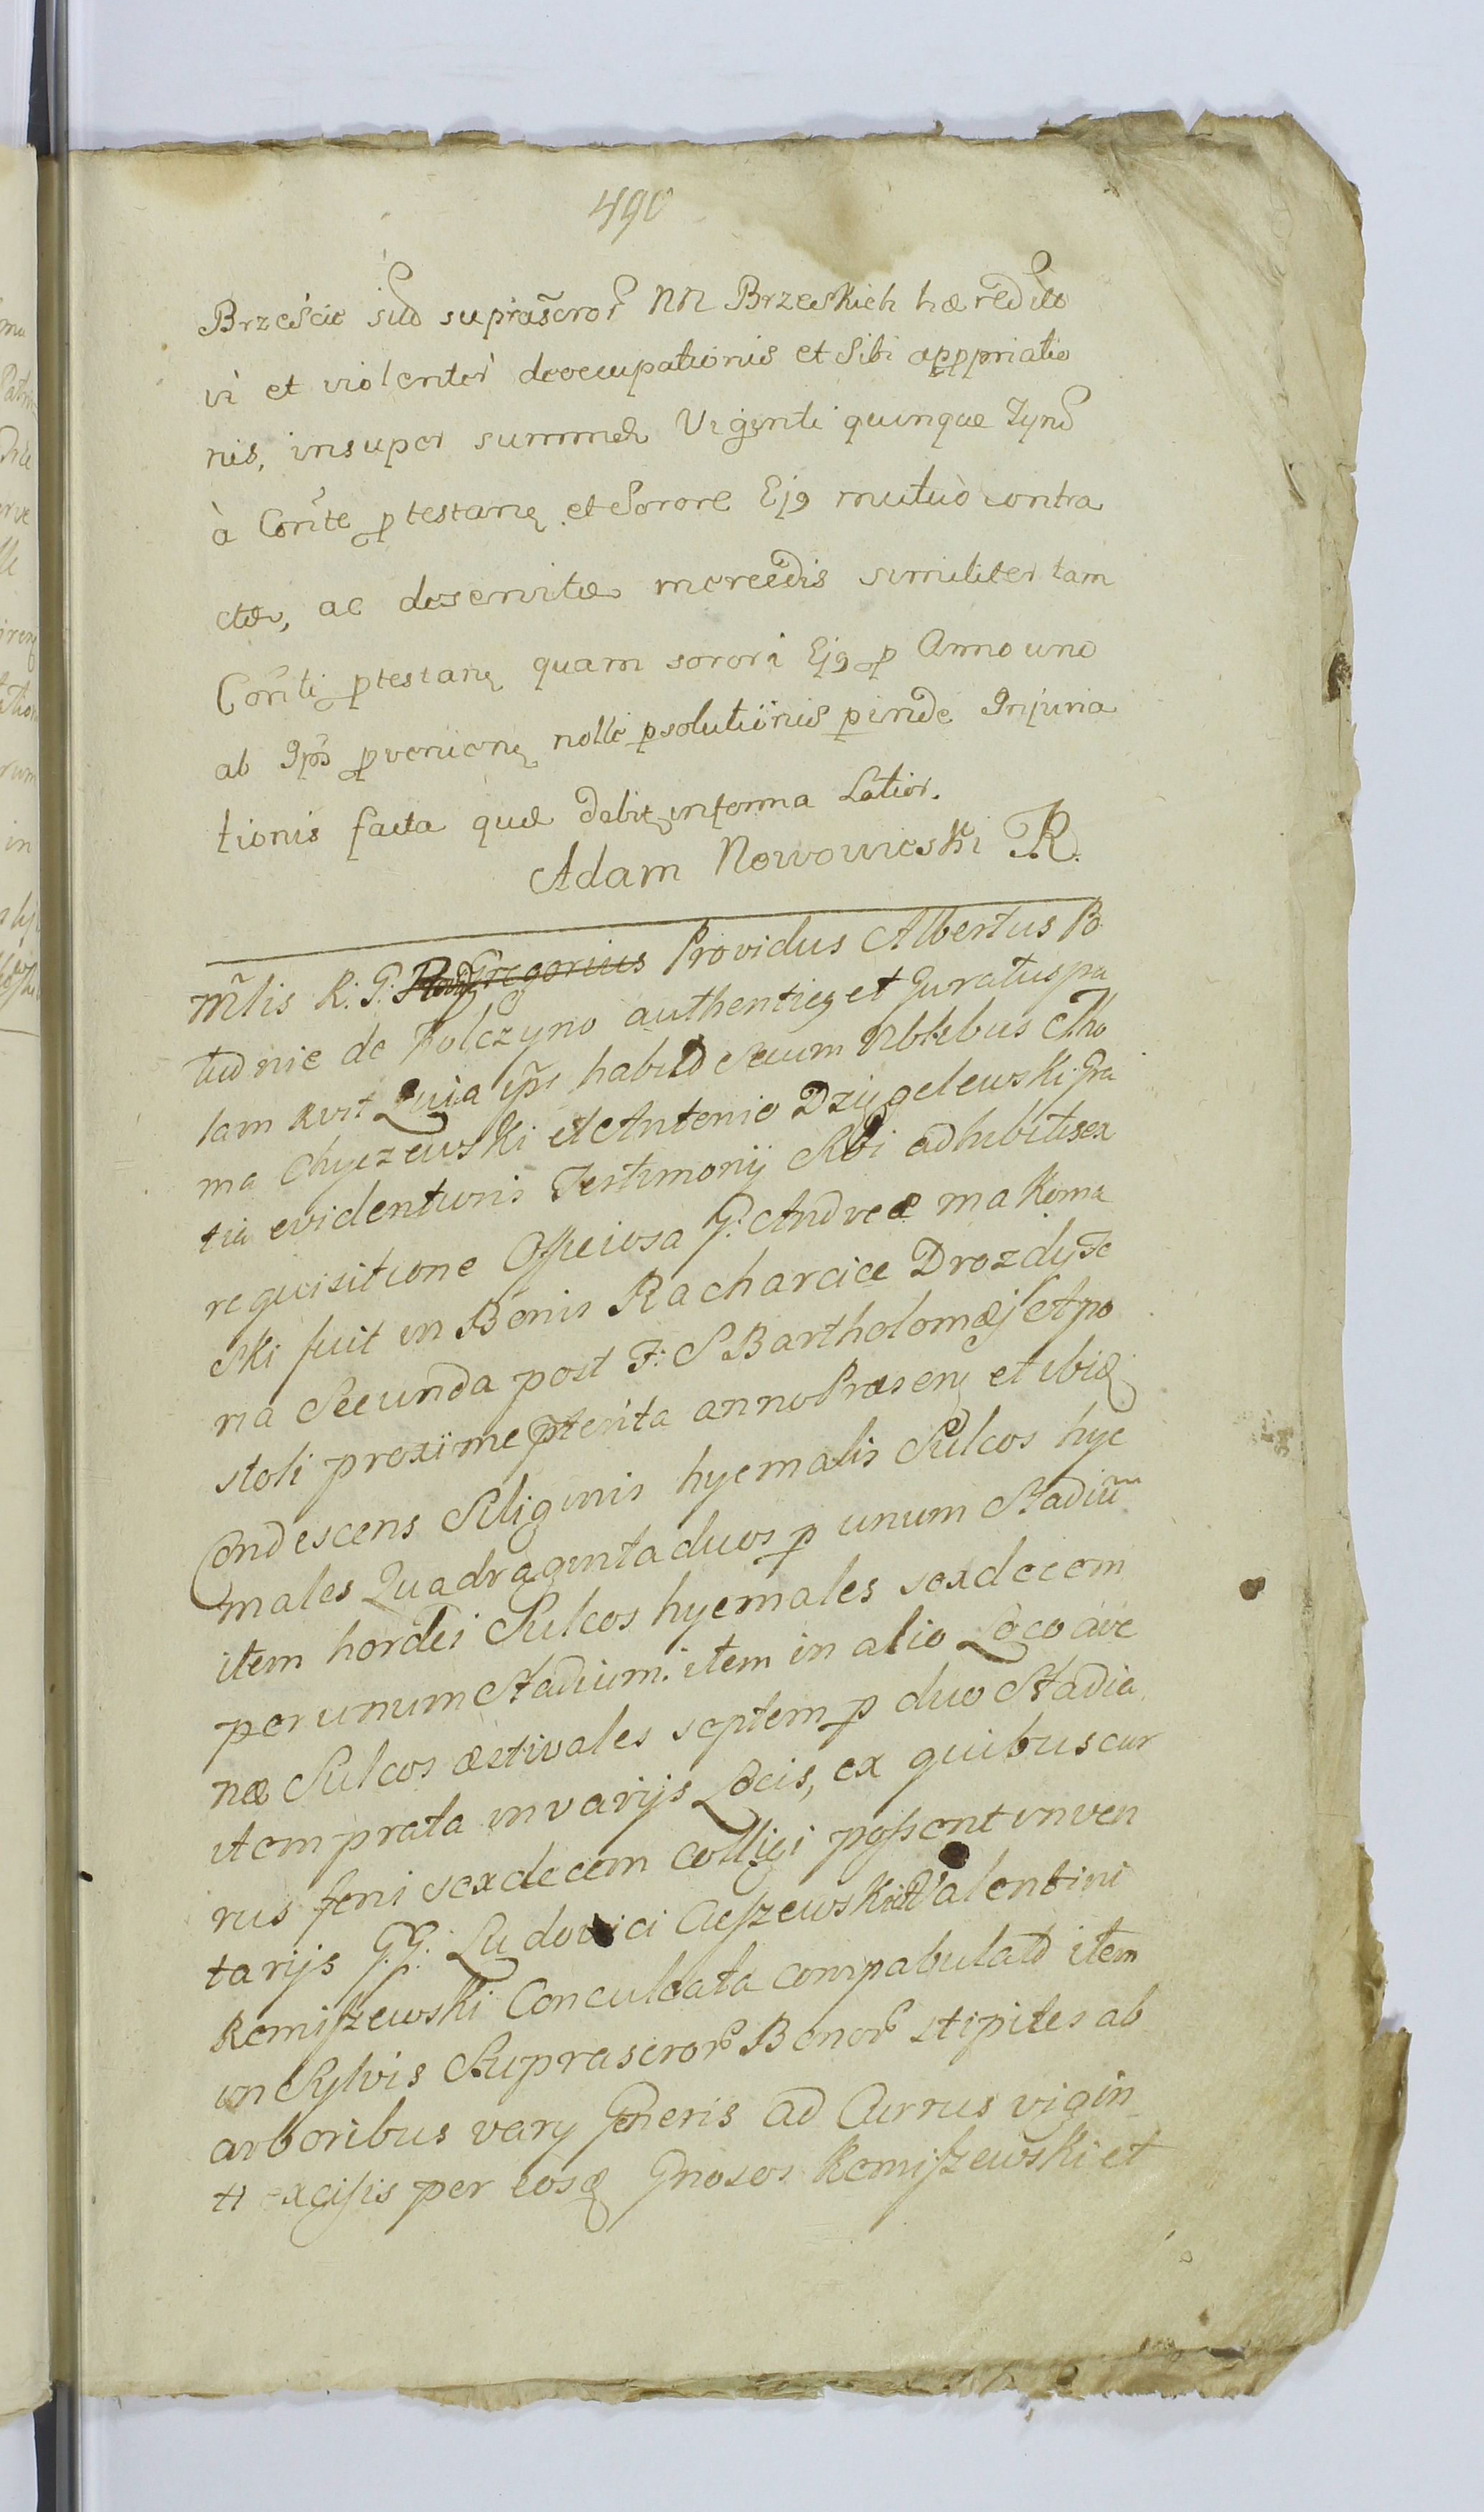 490
Brzescie sűo suprascror NN Brzeskich hæreditō
vi et violenter deoccupationis et Sibi appropriatio
nis, insuper summæ Viginti quinque Tynf
à Cornte protestanę et Sorore Ejq mutuò contra
ctæ, ac deservitæ mercedis similiter tam
Cornti protestanę quam sorori Ejq pro Anno uno
ab Ipős provenienę nolle persolutionis perinde Injuria
tionis facta quæ debit informa Latior.
Adam Nowowieski R.
Mlis R: G: Gregorius Providus Albertus Po
tudnie de Folczyno authenticq et Juratus pa
lam rvit Quia ip̃e habitō Secum Nbilibus Tho
ma Chyczewski et Antonio Dzięgelewski Gra
tia evidentioris Testimonij Sibi adhibitis ex
requisitione Officiosa G: Andreæ makoma
Ski fuit in Bonis Racharcice Drozdy Fe
ria Secunda post F: S Bartholomæj Apo
stoli proxime pterita anno Præsenę et ibiq
Condescens Siliginis hyemalis Sulcos hye
males Quadragintaduos p unum Stadiũ
item hordei Sulcos hyemales sexdecem
per unum Stadium. item in alio Loco ave
næ Sulcos æstivales septem p duo Stadia
item prata in varijs Locis, ex quibus cur
rus feni sexdecem colligi possent inven
tarijs G.G. Ludovici Cieszewski et Valentini
Remiszewski Conculcata compabulatō item
in Sylvis Suprascror Bonor stipites ab
arboribus varij Generis ad Currus vigin
ti excisis per eosq Gnosos Remiszewski et